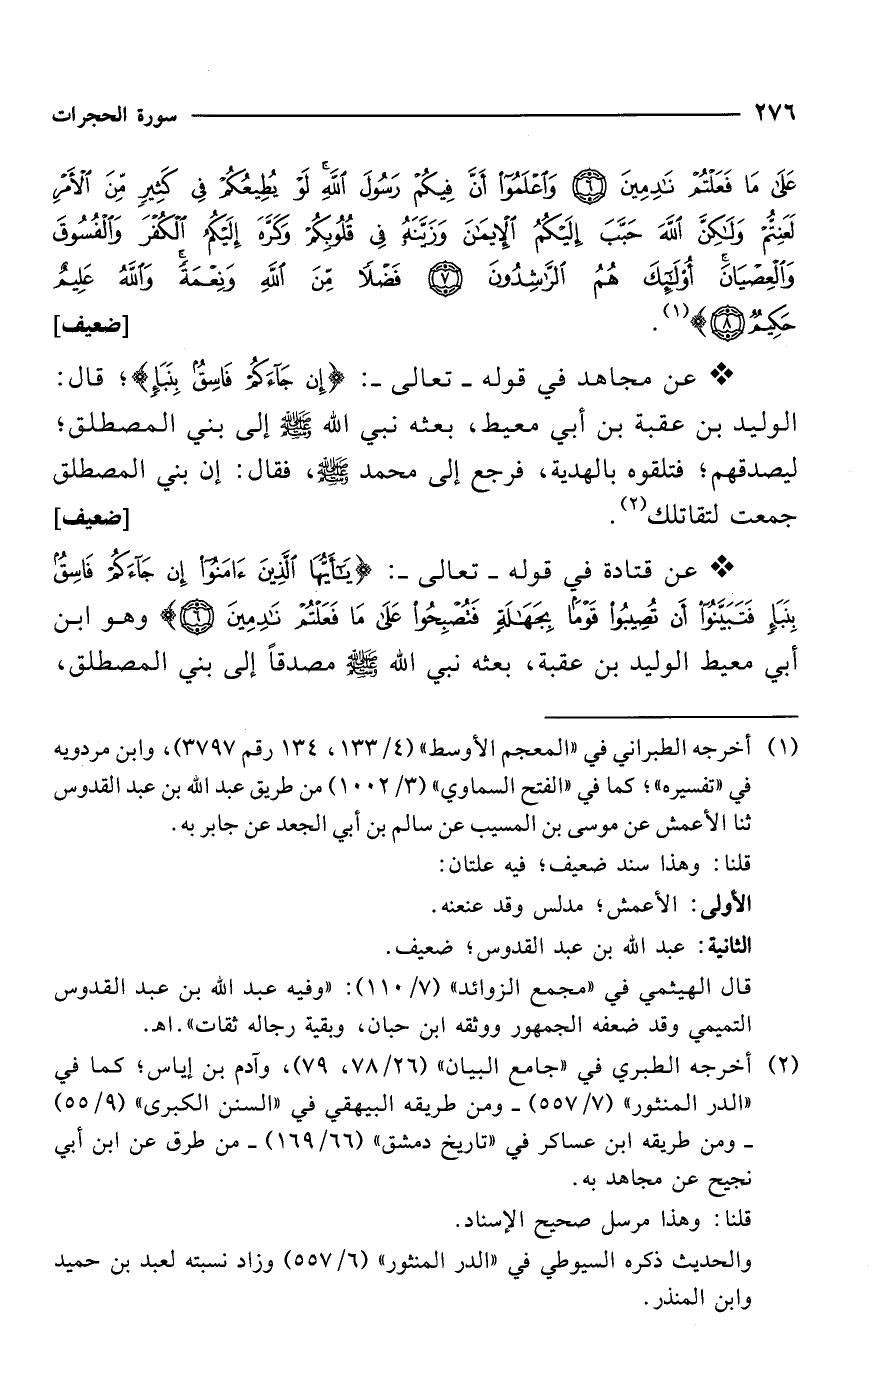 ٢٧٦ سورة الحجرات
عَلَىٰ مَا فَعَلْتُمْ نَٰدِمِينَ ٦ وَٱعْلَمُوٓا۟ أَنَّ فِيكُمْ رَسُولَ ٱللَّهِ ۚ لَوْ يُطِيعُكُمْ فِى كَثِيرٍ مِّنَ ٱلْأَمْرِ
لَعَنِتُّمْ وَلَٰكِنَّ ٱللَّهَ حَبَّبَ إِلَيْكُمُ ٱلْإِيمَٰنَ وَزَيَّنَهُۥ فِى قُلُوبِكُمْ وَكَرَّهَ إِلَيْكُمُ ٱلْكُفْرَ وَٱلْفُسُوقَ
وَٱلْعِصْيَانَ ۚ أُو۟لَٰٓئِكَ هُمُ ٱلرَّٰشِدُونَ ٧ فَضْلًا مِّنَ ٱللَّهِ وَنِعْمَةً ۚ وَٱللَّهُ عَلِيمٌ
حَكِيمٌ ٨﴾(١). [ضعيف]
❖ عن مجاهد في قوله ـ تعالى ـ: ﴿إِن جَآءَكُمْ فَاسِقٌۢ بِنَبَإٍ﴾؛ قال:
الوليد بن عقبة بن أبي معيط، بعثه نبي الله ﷺ إلى بني المصطلق؛
ليصدقهم؛ فتلقوه بالهدية، فرجع إلى محمد ﷺ، فقال: إن بني المصطلق
جمعت لتقاتلك(٢). [ضعيف]
❖ عن قتادة في قوله ـ تعالى ـ: ﴿يَٰٓأَيُّهَا ٱلَّذِينَ ءَامَنُوٓا۟ إِن جَآءَكُمْ فَاسِقٌۢ
بِنَبَإٍ فَتَبَيَّنُوٓا۟ أَن تُصِيبُوا۟ قَوْمًۢا بِجَهَٰلَةٍ فَتُصْبِحُوا۟ عَلَىٰ مَا فَعَلْتُمْ نَٰدِمِينَ ٦﴾ وهو ابن
أبي معيط الوليد بن عقبة، بعثه نبي الله ﷺ مصدقاً إلى بني المصطلق،
(١) أخرجه الطبراني في «المعجم الأوسط» (٤/ ١٣٣، ١٣٤ رقم ٣٧٩٧)، وابن مردويه
في «تفسيره»؛ كما في «الفتح السماوي» (٣/ ١٠٠٢) من طريق عبد الله بن عبد القدوس
ثنا الأعمش عن موسى بن المسيب عن سالم بن أبي الجعد عن جابر به.
قلنا: وهذا سند ضعيف؛ فيه علتان:
الأولى: الأعمش؛ مدلس وقد عنعنه.
الثانية: عبد الله بن عبد القدوس؛ ضعيف.
قال الهيثمي في «مجمع الزوائد» (٧/ ١١٠): «وفيه عبد الله بن عبد القدوس
التميمي وقد ضعفه الجمهور ووثقه ابن حبان، وبقية رجاله ثقات». اهـ.
(٢) أخرجه الطبري في «جامع البيان» (٢٦/ ٧٨، ٧٩)، وآدم بن إياس؛ كما في
«الدر المنثور» (٧/ ٥٥٧) ـ ومن طريقه البيهقي في «السنن الكبرى» (٩/ ٥٥)
ـ ومن طريقه ابن عساكر في «تاريخ دمشق» (٦٦/ ١٦٩) ـ من طرق عن ابن أبي
نجيح عن مجاهد به.
قلنا: وهذا مرسل صحيح الإسناد.
والحديث ذكره السيوطي في «الدر المنثور» (٦/ ٥٥٧) وزاد نسبته لعبد بن حميد
وابن المنذر.